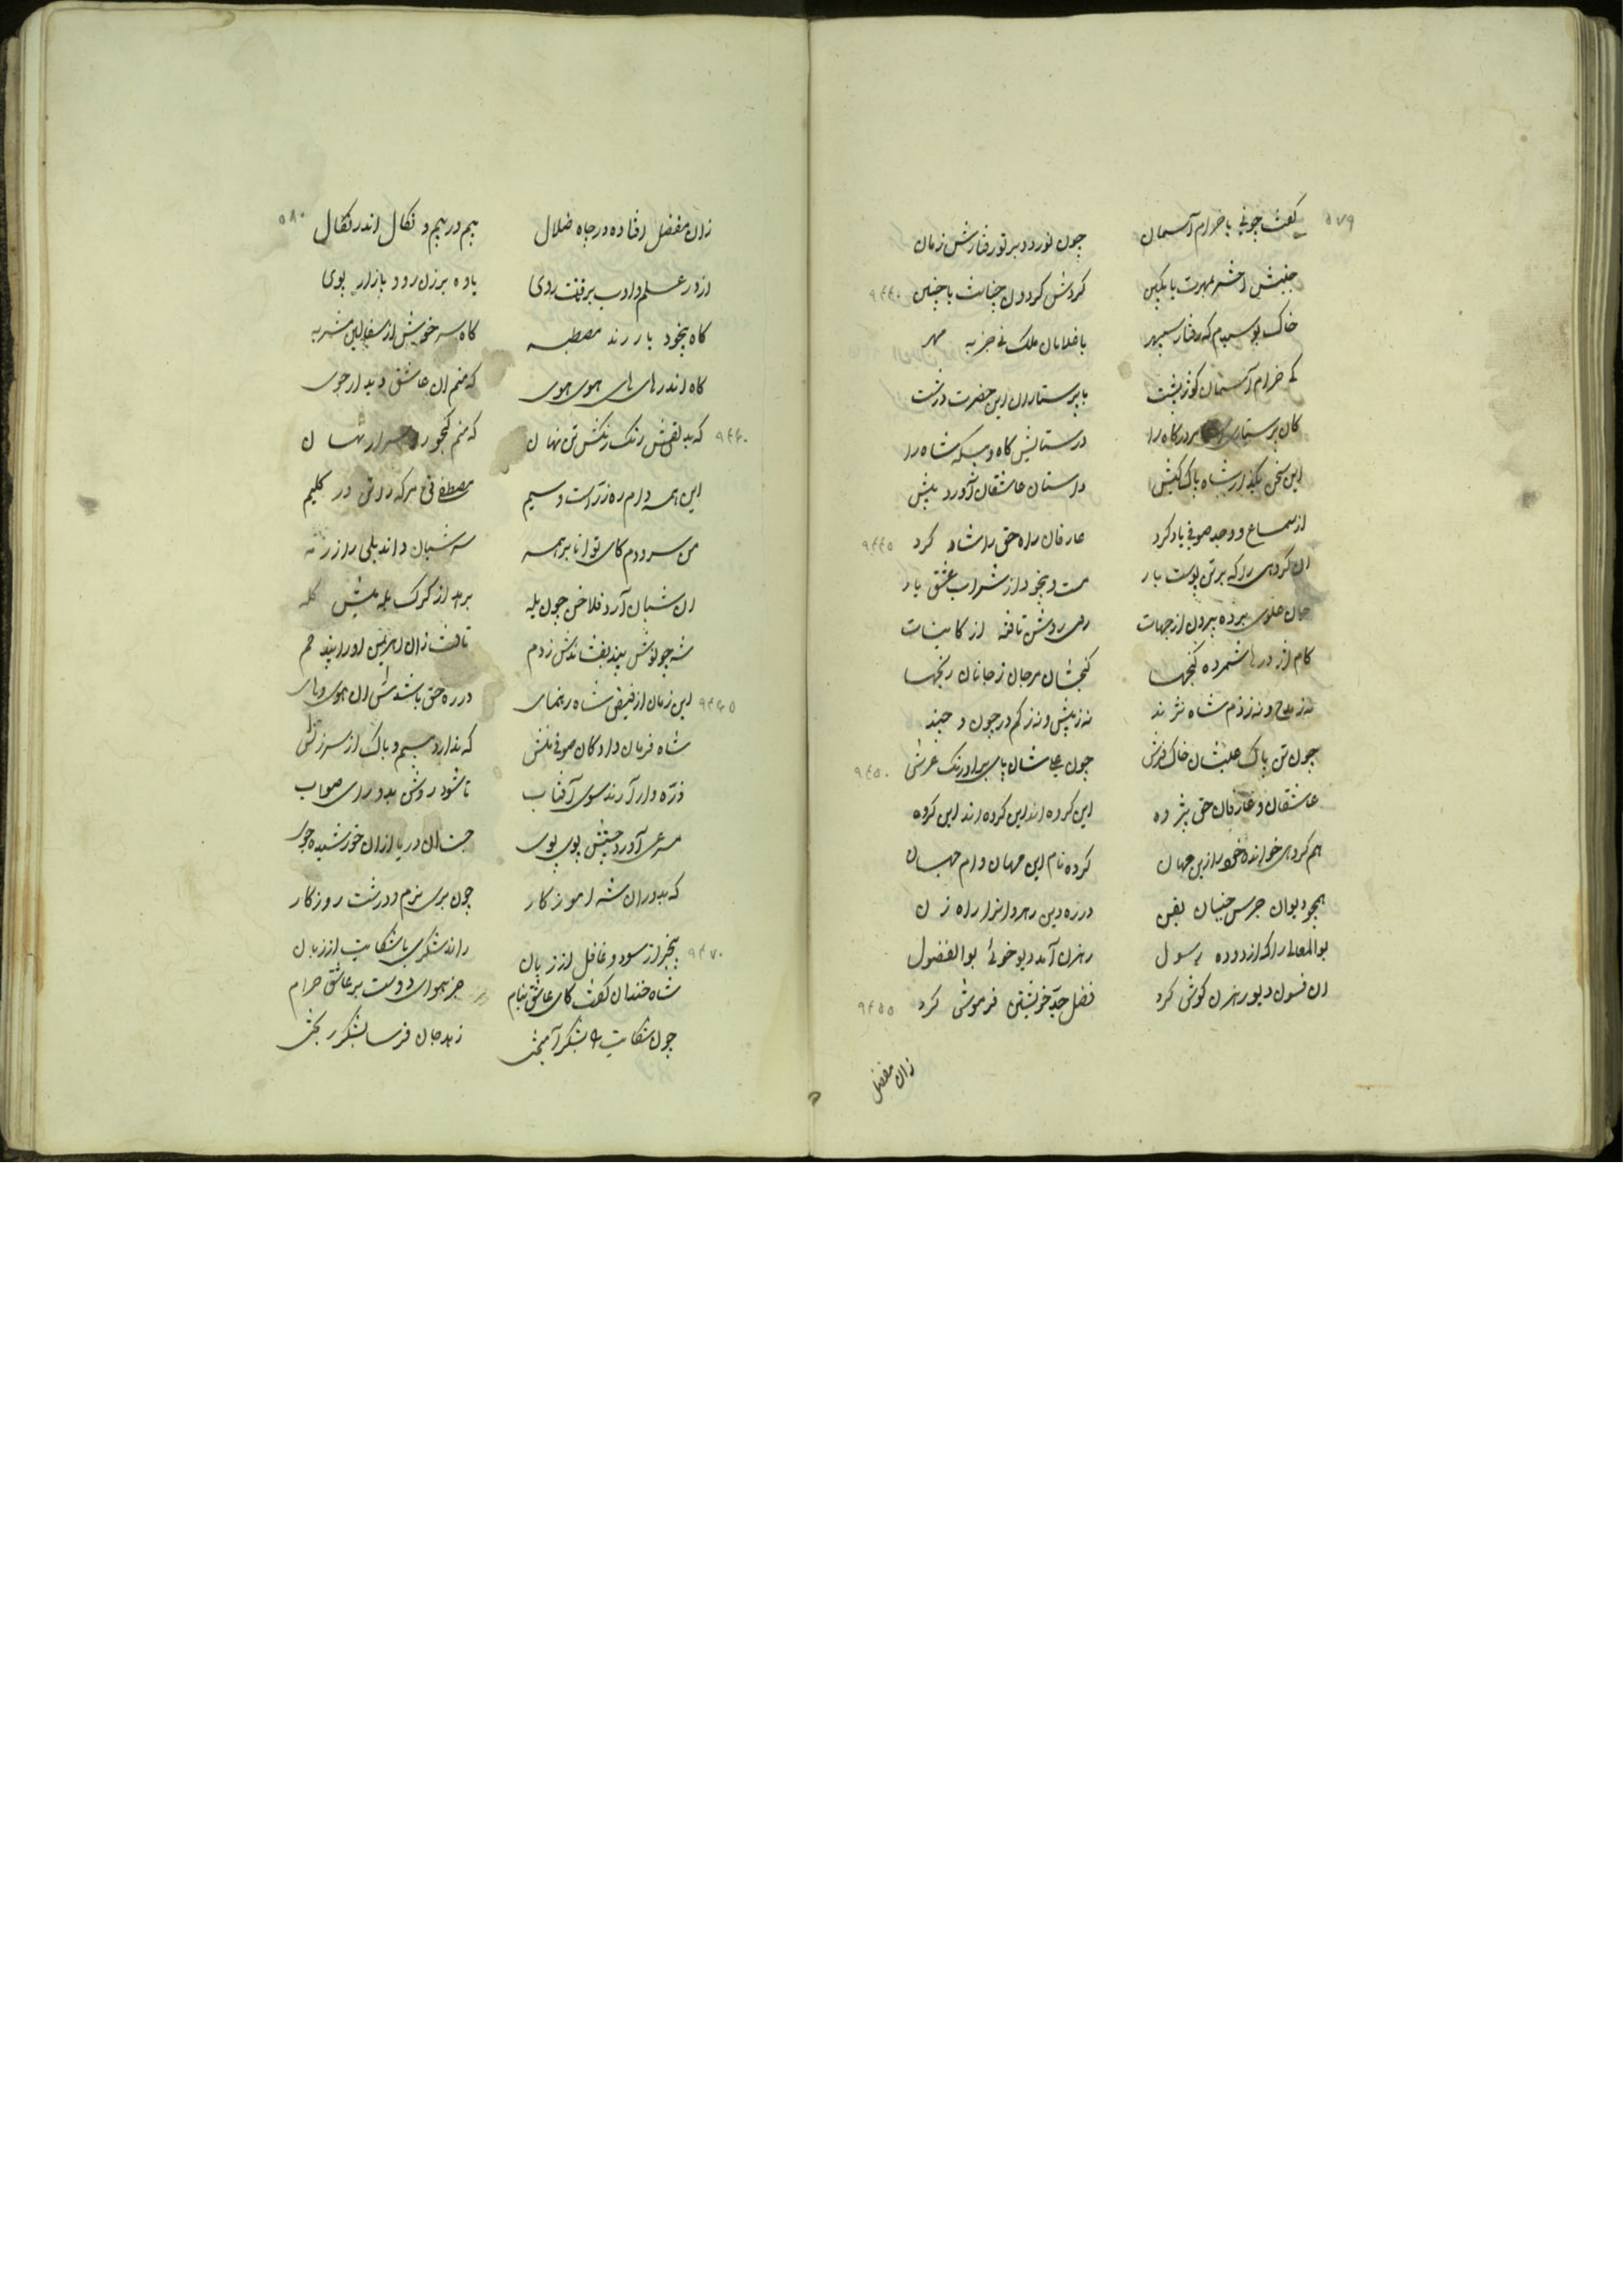 ۵۷۹
گفت چونی با خرام آسمان چون نوردد بر تو رفتارش زمان
جنبش اختر بمهرت یا بکین گردش گردون چنانت یا چنین ۹۴۴۰
خاک بوسیدم که رفتار سپهر با غلامان ملک نی جز به مهر
کی خرام آسمان کوژپشت با پرستاران این حضرت درشت
کان پرستاری درگاه را در ستایش گاه و بیگه شاه را
این سخن بگذار شاه پاک کیش داستان عاشقان آورد پیش
از سماع و وجد صوفی یاد کرد عارفان راه حق را شاد کرد ۹۴۴۵
ان گروهی را که بر تن پوست بار مست و بیخود از شراب عشق یار
جان علوی برده بیرون از جهات روی روشن تافته از کاینات
کام اژدرها شمرده گنجها گنجشان مرجان ز جانان رنجها
نه ز مدح و نه ز ذم شاه نژند نه ز بیش و نه ز کم در چون و چند
چون تن پاک علیشان خاک فرش چون علیشان پای بر اورنگ عرش ۹۴۵۰
عاشقان و عارفان حق پژوه این گروه اند این گروه اند این گروه
هم گروهی خوانده خود را زین جهان کرده نام این جهان دام جهان
همچو دیوان جرس جنبان بفن در ره دین رهروانرا راه زن
بوالمعالی را که از دوده رسول رهزن آمد دیو خوئی بوالفضول
ان فسون دیو رهزن گوش کرد فضل جد خویشتن فرموش کرد ۹۴۵۵
زان مفضل
۵۸۰
زان مفضل افتاده در چاه ضلال بیم در بیم و نکال اندر نکال
از در علم و ادب برتافت روی یاوه برزن رو و بازار پوی
گاه بیخود یار رند مصطبه کاسه خویش از سفالین مشربه
گاه اندر های های هوی هوی که منم ان عاشق دیدار جوی
که بد نقش رنگ رنگش تن نهان که منم گنجور اسرار نهان ۹۴۶۰
این همه دام ره زر است و سیم مصطفی نی هر که زد تن در گلیم
من سرودم کای توانا بر همه سر شبان داند یلی را از رمه
ان شبان آرد فلاخن چون یله برهد از گرگ یله میش گله
شه چو لوش بیند بنشاندش ز دم تافت زان اهریمن او را بیند خم
این زمان از فیض شاه رهنمای در ره حق باشدش ان هوی و های ۹۴۶۵
شاه فرمان داد کان صوفی منش که ندارد بیم و باک از سرزنش
ذره وار آرند سوی آفتاب تا شود روشن بدو رای صواب
مسرع آورد جستش پوی پوی جست ان دریا ازان خورشید جوی
که بدوران شه اموزگار چون بری نرم و درشت روزگار
بیخبر از سود و غافل از زیان راند شکری یا شکایت از زبان ۹۴۷۰
شاه خندان گفت کای عاشق بنام جز هوای دوست بر عاشق حرام
چون شکایت با شکر آمیختی زهد جان فرسا بشکر ریختی